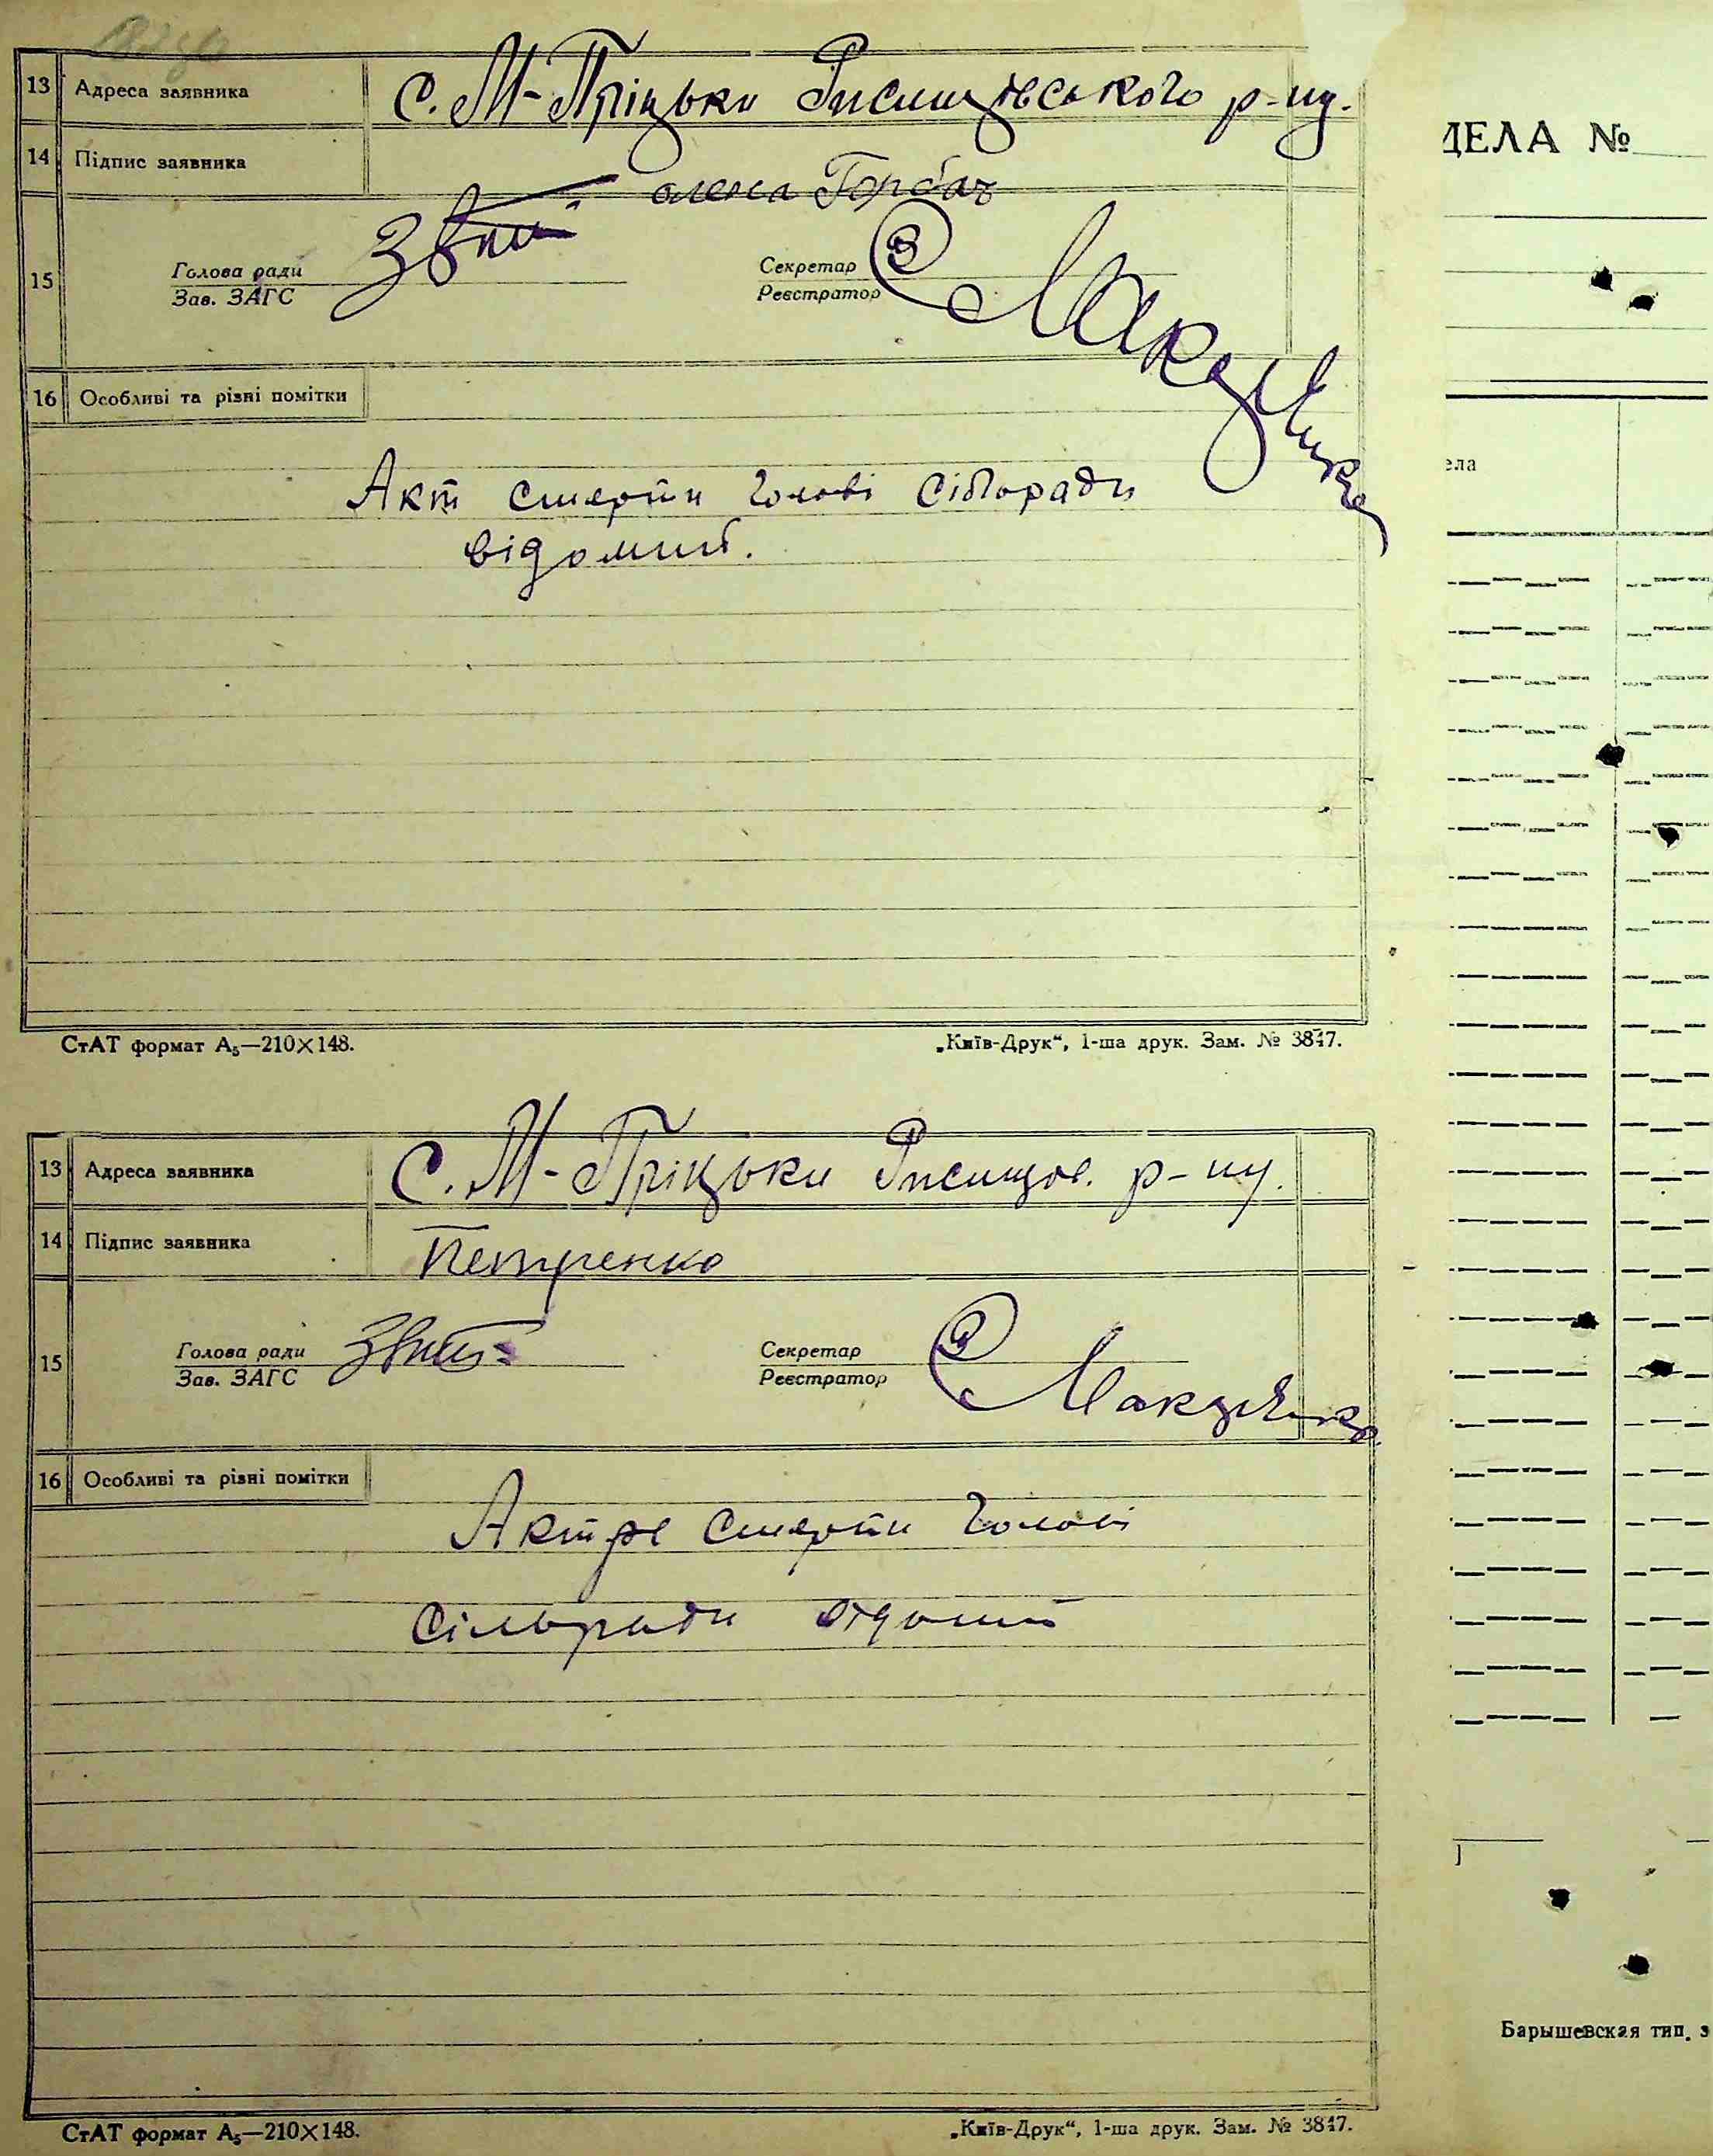 13 Адреса заявника С. М-Пріцьки Ржищівського р-ну.
14 Підпис заявника
олекса Горбач
15 Голова ради Секретар
Зав. ЗАГС Реєстратор
16 Особливі та різні помітки
Акт смерти голові сільради
відомий.
СтАТ формат А₅—210×148. „Київ-Друк“, 1-ша друк. Зам. № 3847.
13 Адреса заявника С. М-Пріцьки Ржищов. р-ну.
14 Підпис заявника Петренко
15 Голова ради Секретар
Зав. ЗАГС Реєстратор
16 Особливі та різні помітки
смерти голові
сільради відомий
СтАТ формат А₅—210×148. „Київ-Друк“, 1-ша друк. Зам. № 3847.
ДЕЛА №
ела
Барышевская тип. з